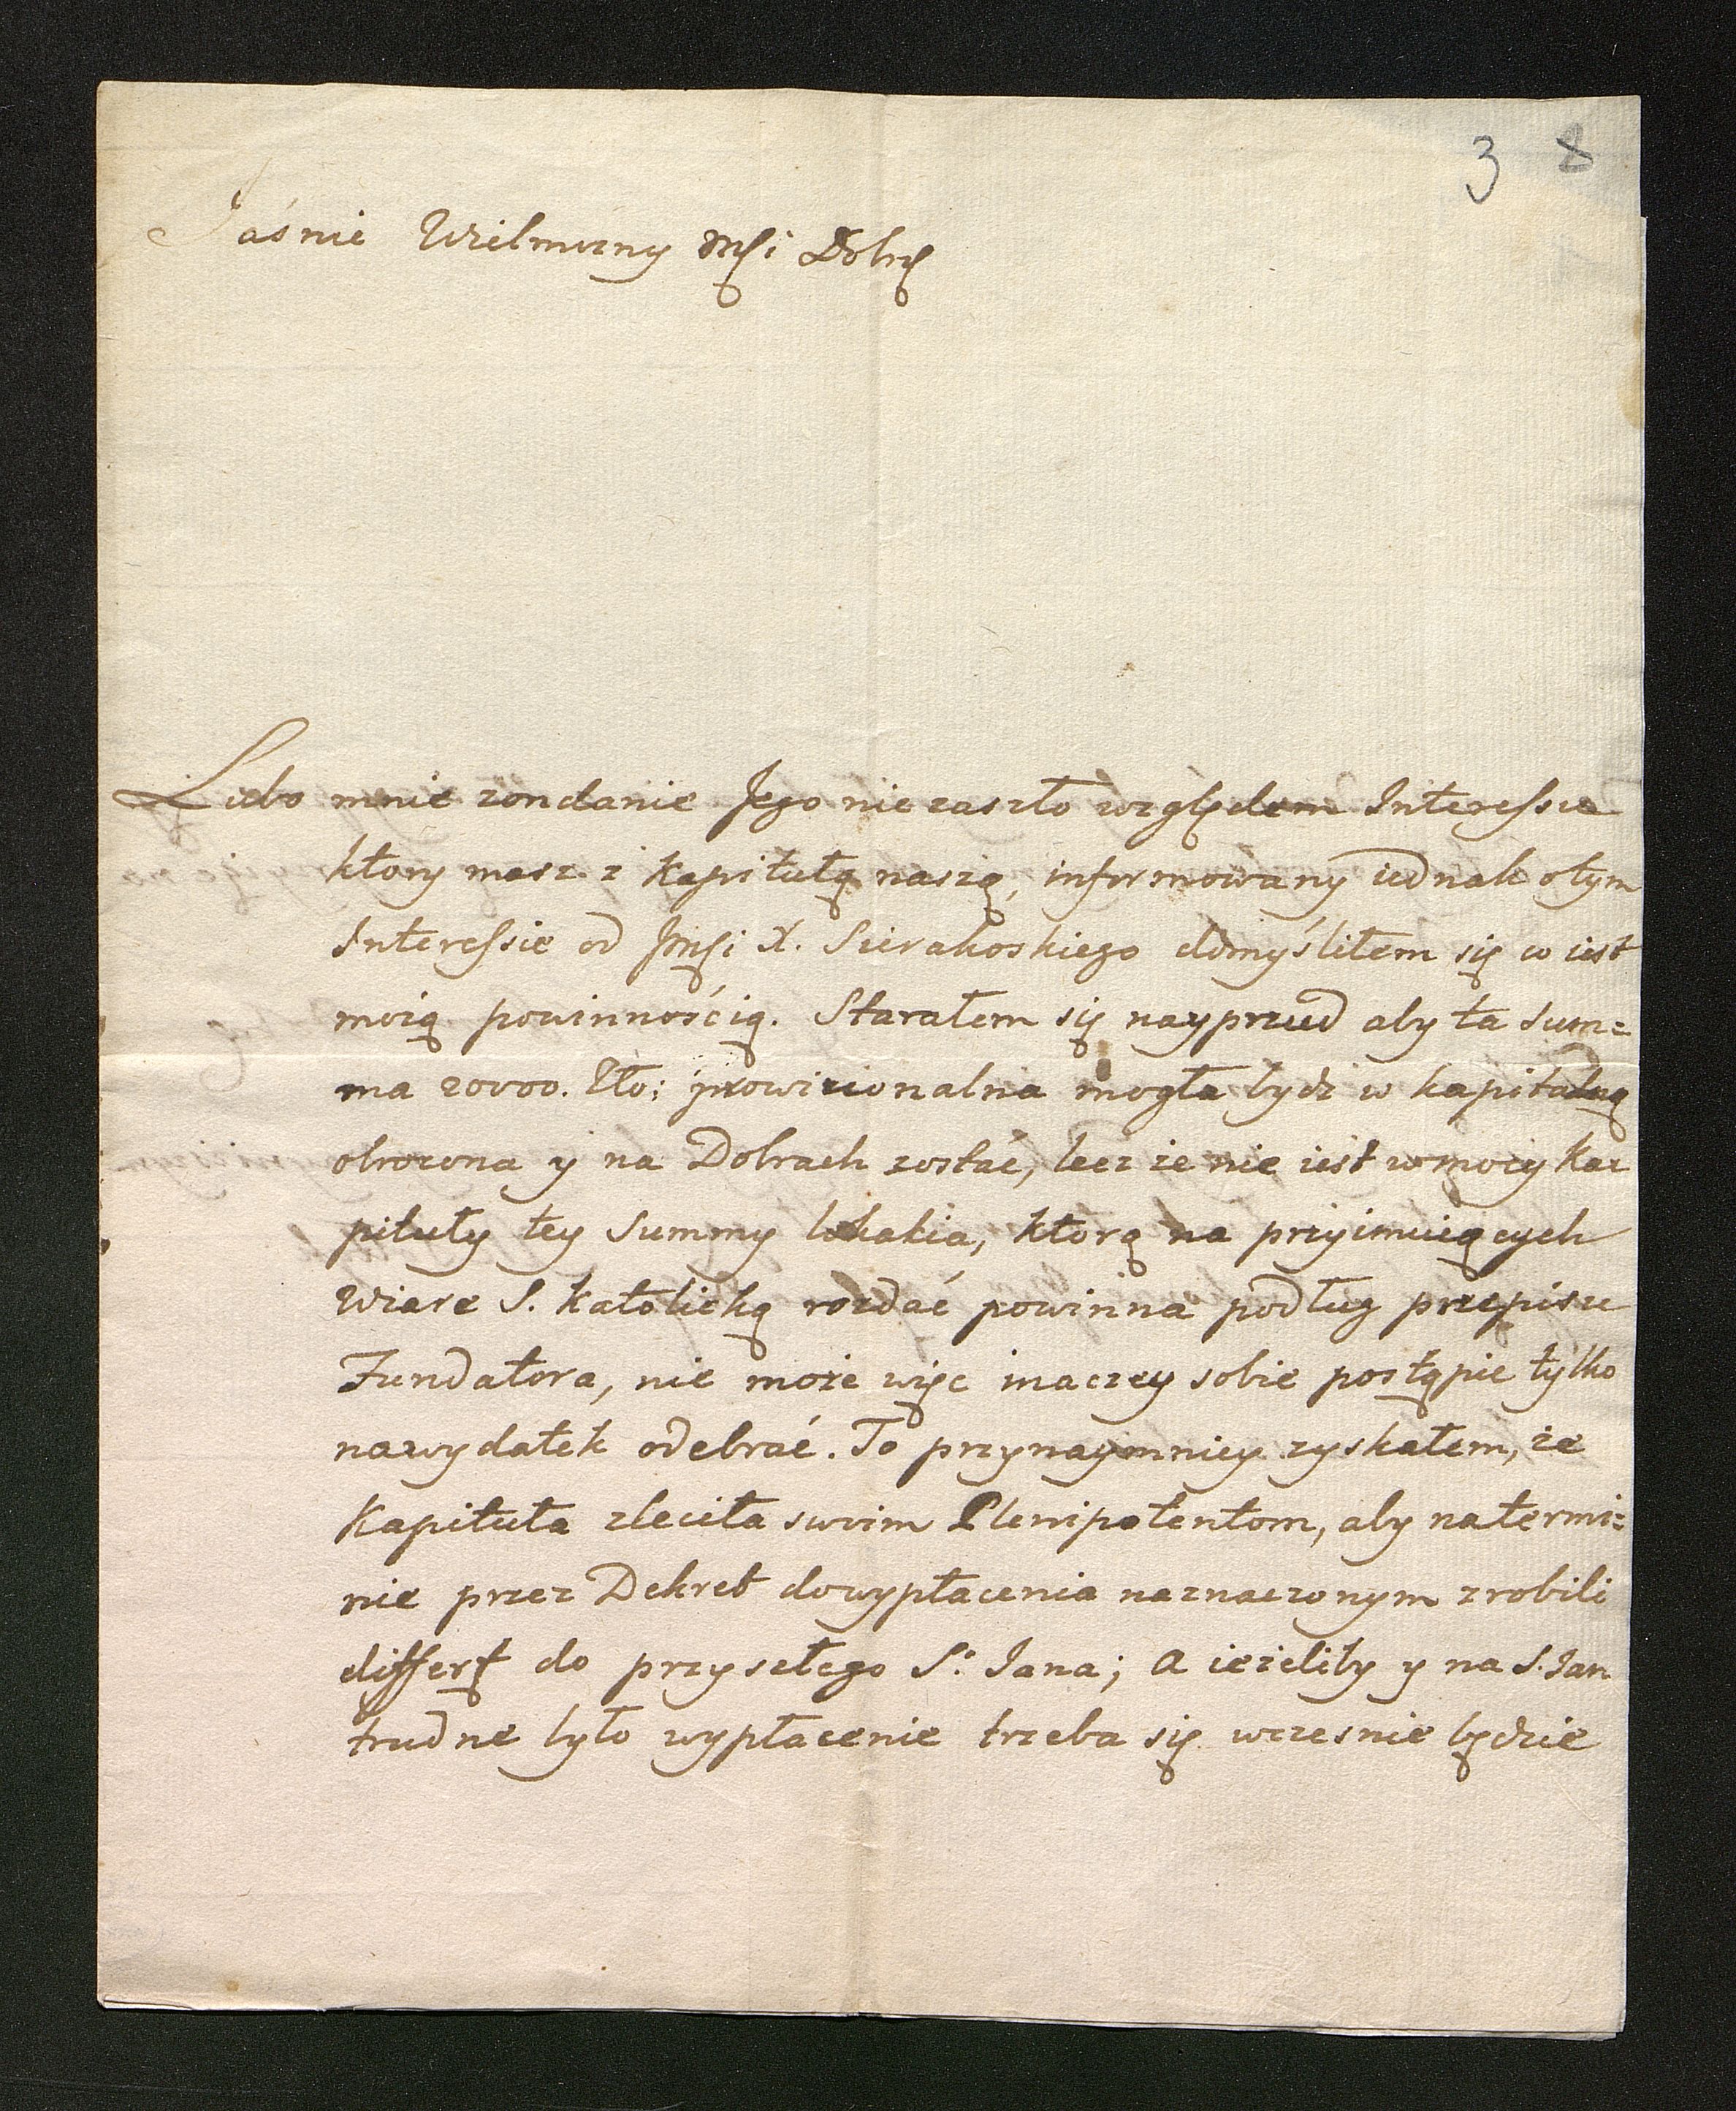 3 8
Jaśnie Wielmozny Mci Dobrę
Lubo mnie zondanie Jego nie zaszło względem Interessu
ktory masz z Kapitułą naszą, informowany iednak o tym
Interessie od Jmci X. Sierakoskiego domyśliłem się co iest
moią powinnością. Starałem się nayprzud aby ta Sum=
ma 20000. Zło: prowizionalna mogła bydz w kapitalną
obrocona y na Dobrach zostać, lecz ze nie iest w mocy Ka=
pituły tey Summy lokatia, ktorą na przyimuiących
Wiare S. Katolicką rozdać powinna podług przepisu
Fundatora, nie moze więc inaczey sobie postąpic tylko
na wydatek odebrać. To przynaymniey zyskałem, ze
Kapituła zleciła swoim Plenipotentom, aby na termi=
nie przez Dekret do wypłacenia naznaczonym zrobili
differt do przyszłego S: Jana; a iezeliby y na S. Jan
trudne było wypłacenie trzeba się wczesnie będzie